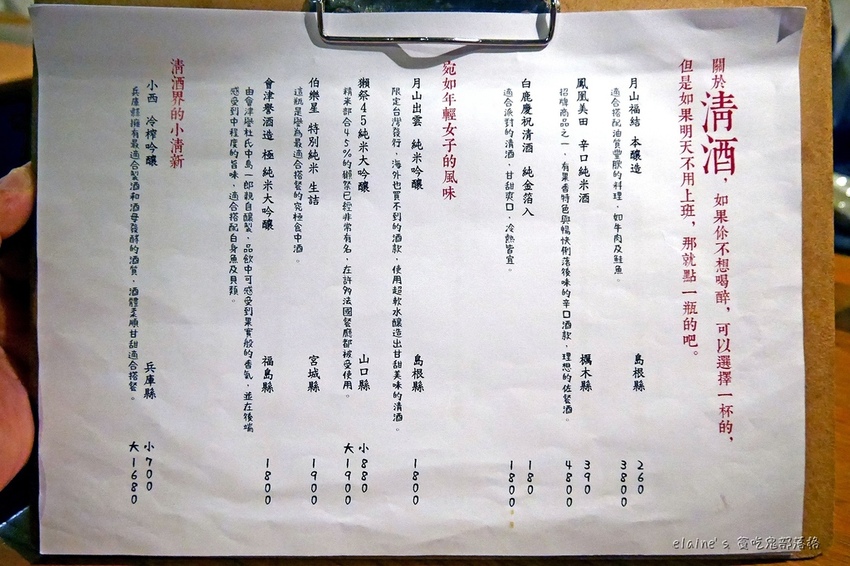 關於清酒，如果你不想喝醉，可以選擇一杯的，
但是如果明天不用上班，那就點一瓶的吧。
月山福結 本釀造 島根縣 260
3800
適合搭配油質豐腴的料理，如牛肉及鮭魚。
鳳凰美田 辛口純米酒 櫔木縣 390
4800
招牌商品之一，有果香特色與暢快俐落後味的辛口酒款，理想的佐餐酒。
白鹿慶祝清酒 純金箔入 180
1800
適合派對的清酒，甘甜爽口，冷熱皆宜。
宛如年輕女子的風味
月山出雲 純米吟釀 島根縣 1800
限定台灣發行，海外也買不到的酒款，使用超軟水釀造出甘甜美味的清酒。
獺祭45純米大吟釀 山口縣 小880
大1900
精米部合45%的獺祭已經非常有名，在許多法國餐廳都被受使用。
伯樂星 特別純米 生詰 宮城縣 1900
這瓶是譽為最適合搭餐的究極食中酒。
會津譽酒造 極 純米大吟釀 福島縣 1800
由會津譽杜氏中島一郎親自釀製，品飲中可感受到果實般的香氣，並在後端
感受到中程度的旨味，適合搭配白身魚及貝類。
清酒界的小清新
小西 冷榨吟釀 兵庫縣 小700
大1680
兵庫縣擁有最適合製酒和酒母發酵的酒質，酒體柔順甘甜適合搭餐。
elaine's 貪吃鬼部落格